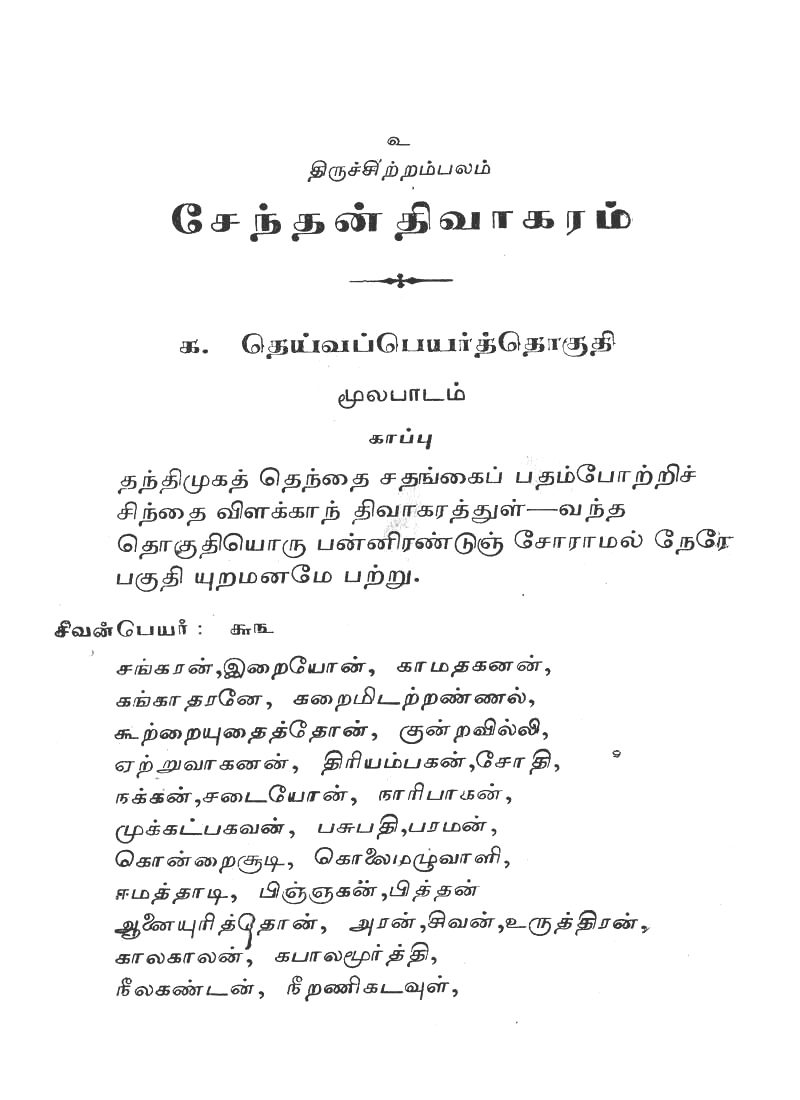 உ
திருச்சிற்றம்பலம்
சேந்தன் திவாகரம்
க. தெய்வப்பெயர்த்தொகுதி
மூலபாடம்
காப்பு
தந்திமுகத் தெந்தை சதங்கைப் பதம்போற்றிச்
சிந்தை விளக்காந் திவாகரத்துள்—வந்த
தொகுதியொரு பன்னிரண்டுஞ் சோராமல் நேரே
பகுதி யுறமனமே பற்று.
சிவன்பெயர் : ௬௩
சங்கரன்,இறையோன், காமதகனன்,
கங்காதரனே, கறைமிடற்றண்ணல்,
கூற்றையுதைத்தோன், குன்றவில்லி,
ஏற்றுவாகனன், திரியம்பகன்,சோதி,
நக்கன்,சடையோன், நாரிபாகன்,
முக்கட்பகவன், பசுபதி,பரமன்,
கொன்றைசூடி, கொலைமழுவாளி,
ஈமத்தாடி, பிஞ்ஞகன்,பித்தன்
ஆனையுரித்தோன், அரன்,சிவன்,உருத்திரன்,
காலகாலன், கபாலமூர்த்தி,
நீலகண்டன், நீறணிகடவுள்,